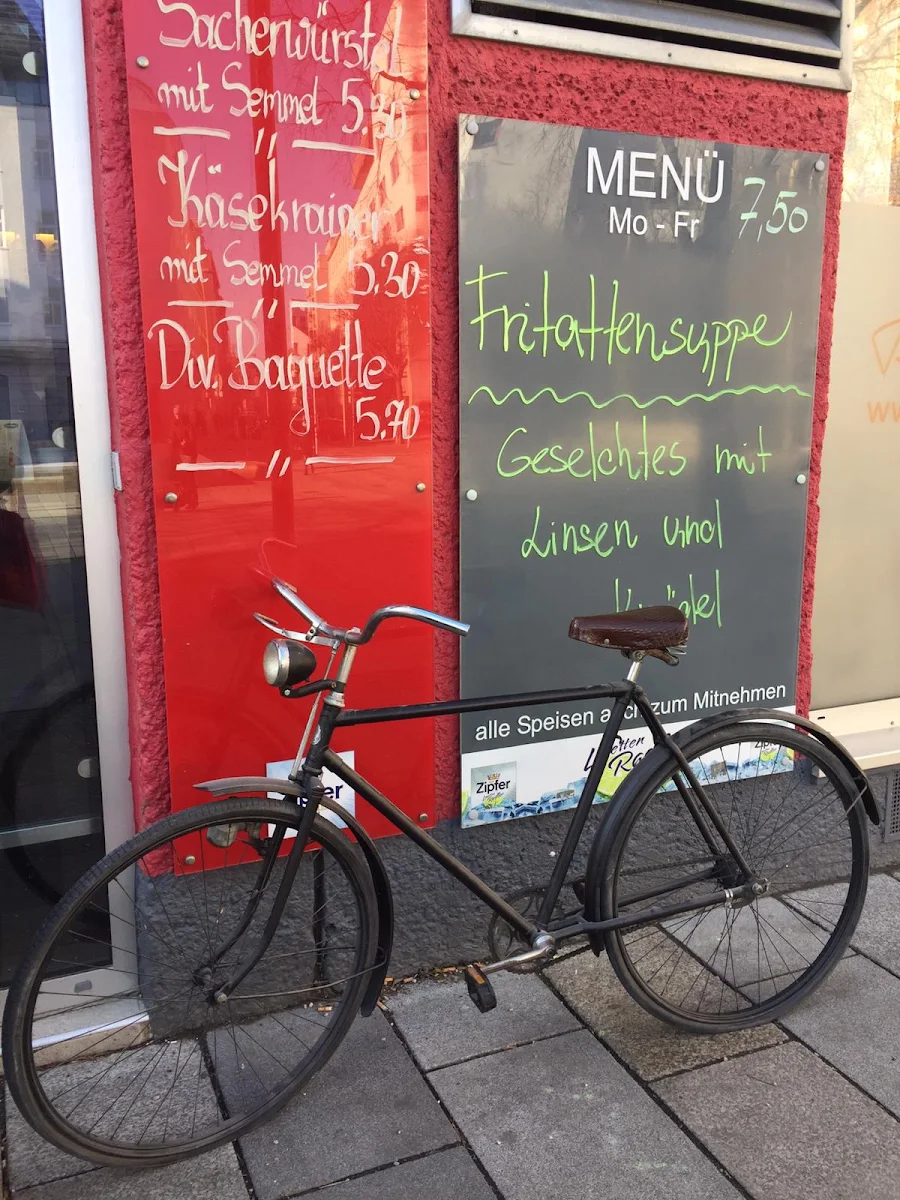 Sacherwürstel
mit Semmel 5.30
Käsekrainer
mit Semmel 5.30
Div. Baguette
5.70
MENÜ
Mo - Fr
7,50
Frittattensuppe
Geselchtes mit
Linsen und
alle Speisen auch zum Mitnehmen
Zipfer